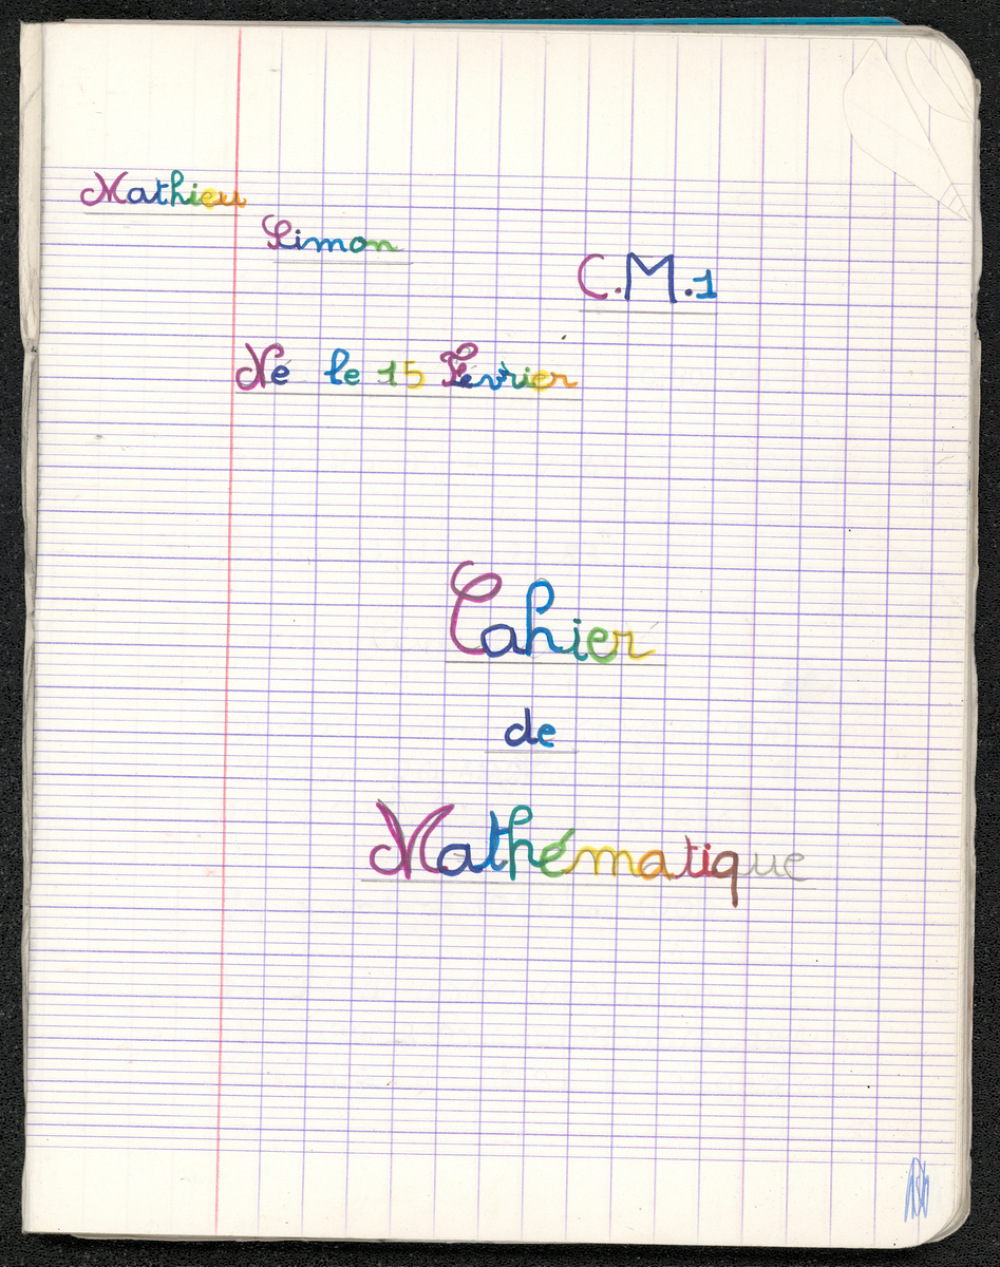 Mathieu
Simon
C.M.1
Né le 15 Février
Cahier
de
Mathématique